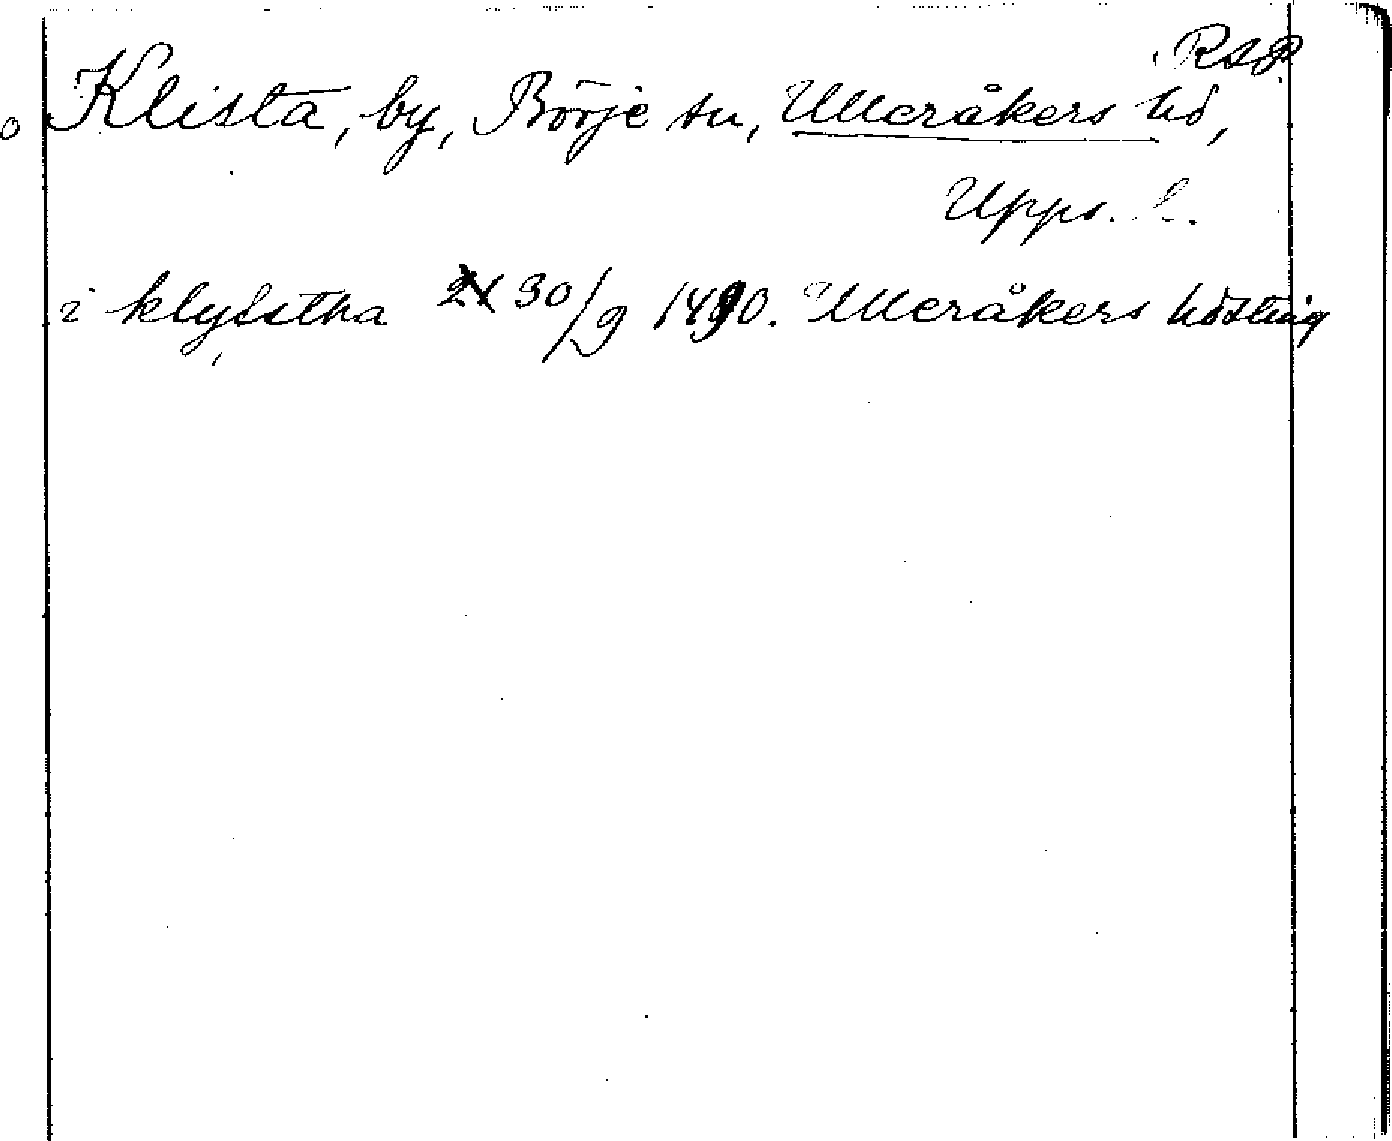 RAP.
o Klista, by, Börje sn, Ulleråkers hd,
Upps. l.
i klysstha 30/9 1490. Ulleråkers hdsting